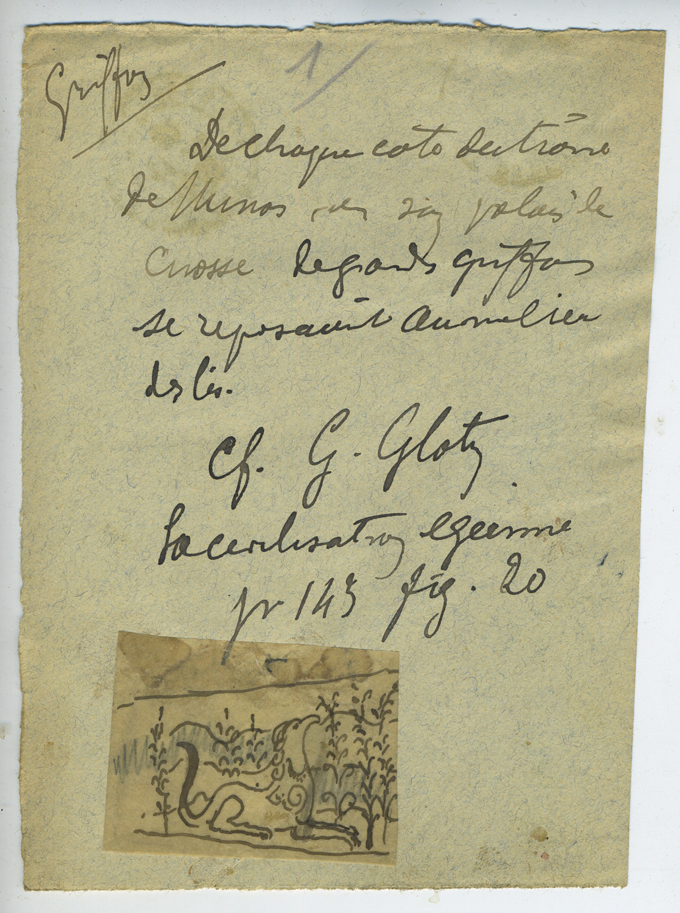 Griffon
1/
De chaque côté du trône
de Minos en son palais de
Cnosse de grands griffons
se reposaient au milieu
des lis.
Cf. G. Glotz
La civilisation égéenne
p 143 fig. 20